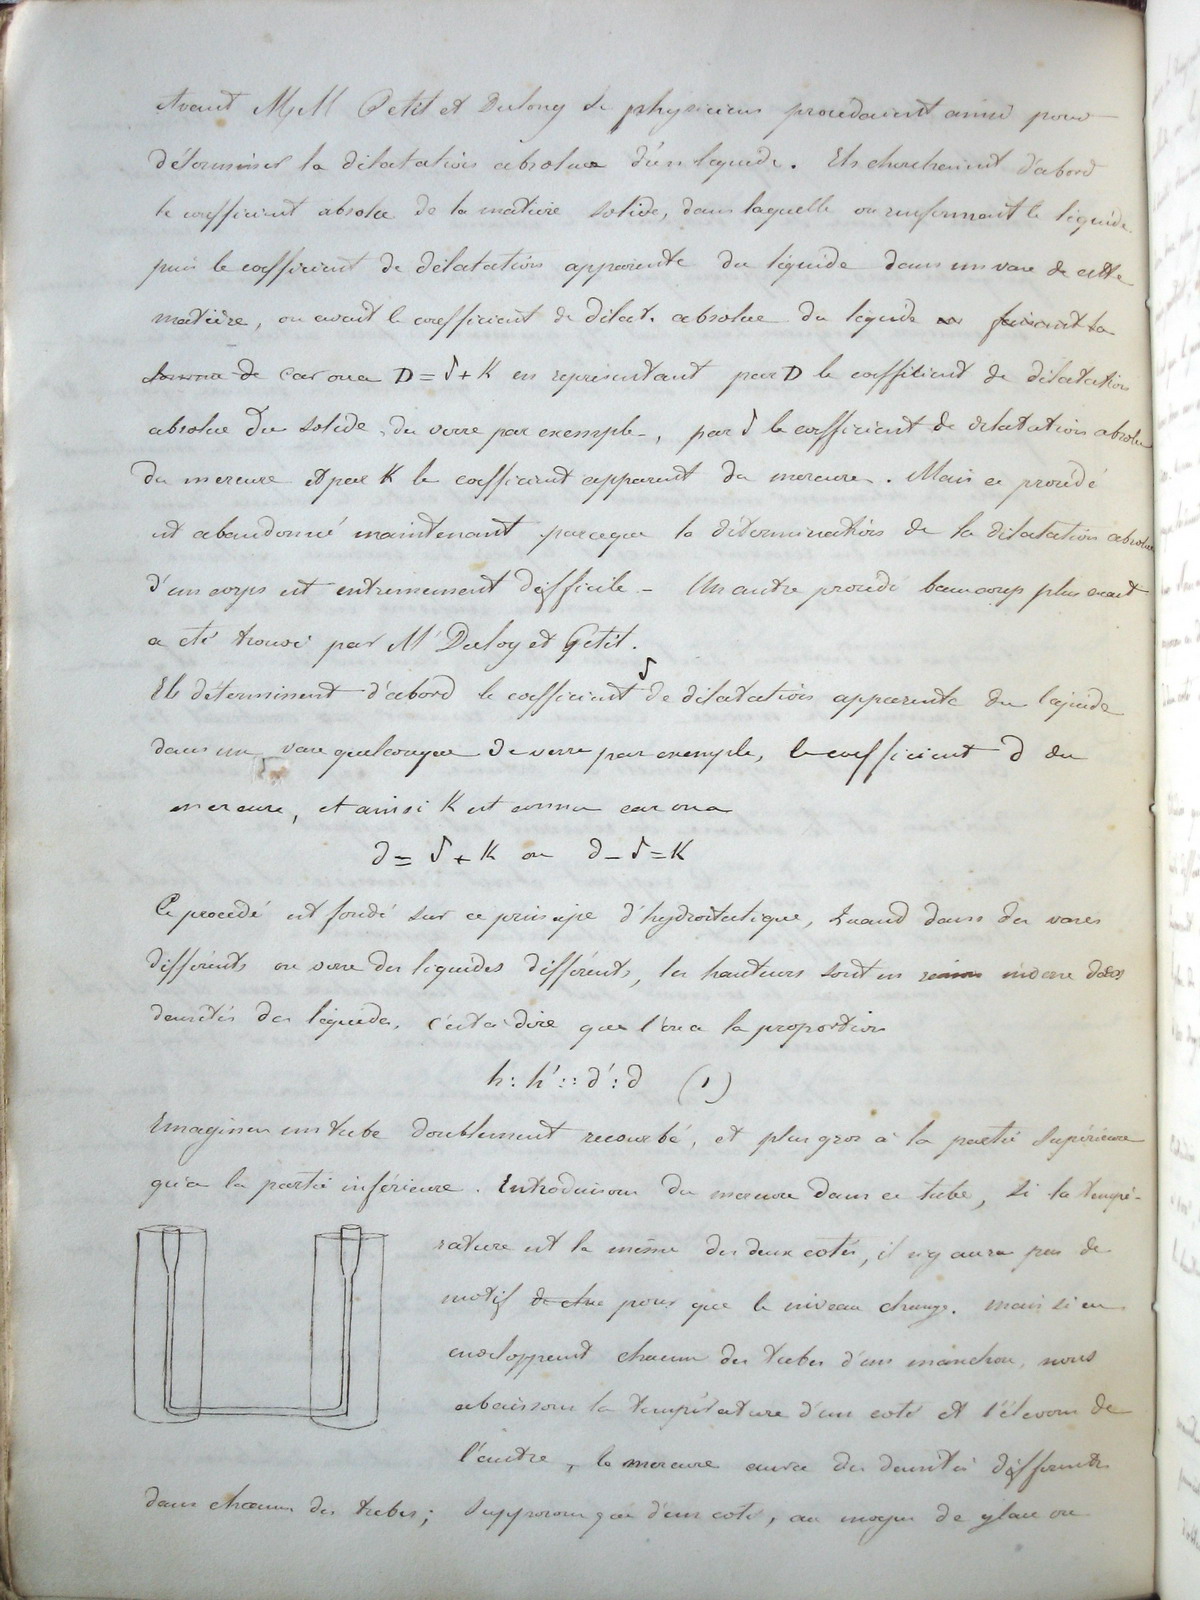 Avant MM Petit et Dulong les physiciens procedaient ainsi pour
déterminer la dilatation absolue d'un liquide. Ils cherchaient d'abord
le coefficient absolu de la matière solide, dans laquelle on renfermait le liquide
puis le coefficient de dilatation apparente du liquide dans un vase de cette
matière, on avait le coefficient de dilat. absolue du liquide en faisant la
somme de car on a D = δ + K en représentant par D le coefficient de dilatation
absolue du solide, du verre par exemple, par δ le coefficient de dilatation absolue
du mercure et par K le coefficient apparent du mercure. Mais ce procédé
est abandonné maintenant parceque la détermination de la dilatation absolue
d'un corps est extremement difficile - Un autre procédé beaucoup plus exact
a été trouvé par Mr Dulog et Petit.
Ils déterminent d'abord le coefficient δ de dilatation apparente du liquide
dans un vase quelconque de verre par exemple, le coefficient d du
mercure, et ainsi K est connu car on a
d = δ + K ou d - δ = K
Ce procédé est fondé sur ce principe d'hydrostatique, Quand dans des vases
différents on verse des liquides différents, les hauteurs sont en raison inverse des
densités des liquides, c'est à dire que l'on a la proportion
h : h' :: d' : d (1)
Imaginons un tube doublement recourbé, et plus gros à la partie supérieure
qu'a la partie inférieure. Introduisons du mercure dans ce tube, si la tempé-
rature est la même des deux cotés, il n'y aura pas de
motif de cha pour que le niveau change. Mais si en
enveloppant chacun des tubes d'un manchon, nous
abaissons la température d'un coté et l'élevons de
l'autre, le mercure aura des densités différentes
dans chacun des tubes ; supposons que d'un coté, au moyen de glace on